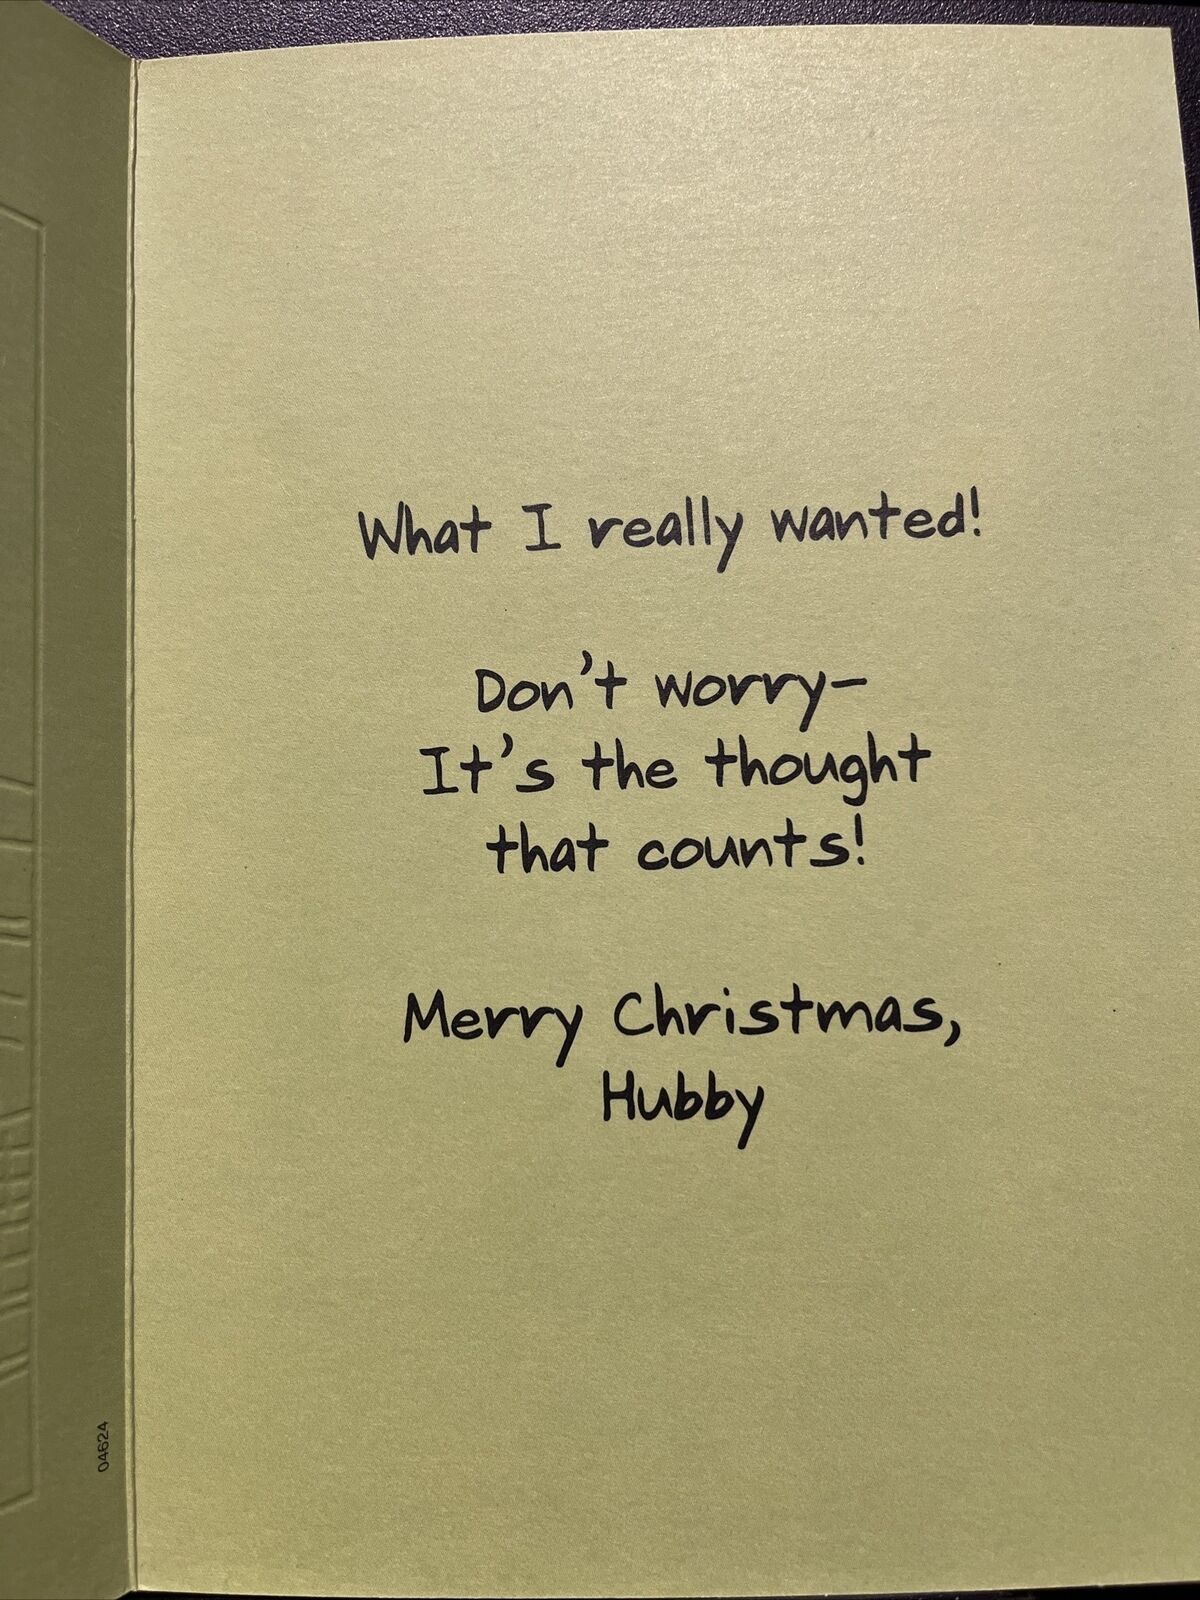 What I really wanted!
Don't worry–
It's the thought
that counts!
Merry Christmas,
Hubby
04624